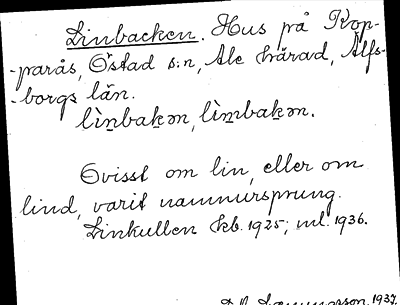 Linbacken. Hus på Kop-
-parås, Östad s:n, Ale härad, Älfs-
-borgs län.
lìn̲bakən, lìm̲bakən.
Ovisst om lin, eller om
lind, varit namnursprung.
Linkullen kb. 1925; ml. 1936.
1937.